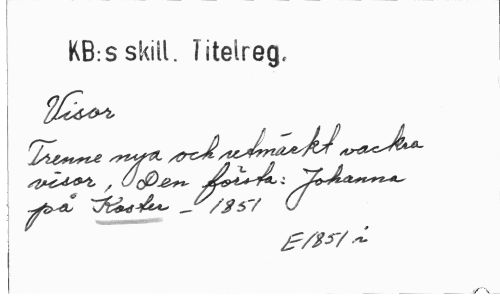 KB:s skill. Titelreg.
Visor
Trenne nya och utmärkt vackra
visor, Den första: Johanna
på Koster – 1851
E1851 i